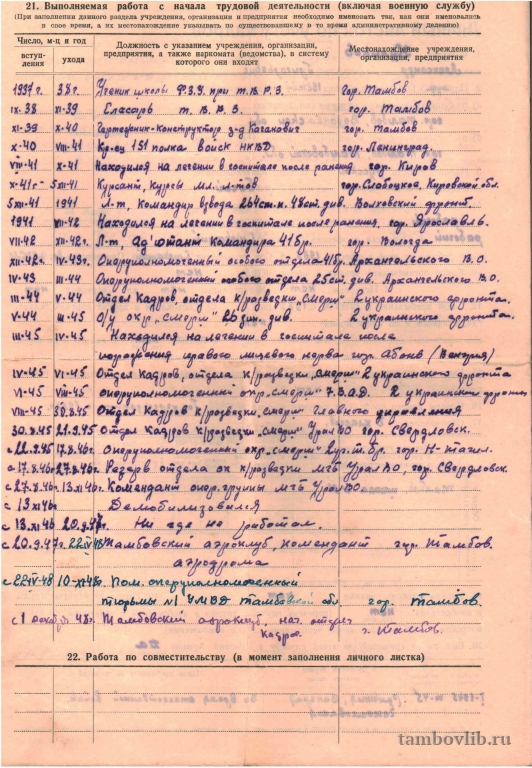 21. Выполняемая работа с начала трудовой деятельности (включая военную службу)
(При заполнении данного раздела учреждения, организации и предприятия необходимо именовать так, как они именовались
в свое время, а их местонахождение указывать по существовавшему в то время административному делению)
Число, м-ц и год
вступ-
ления
ухода
Должность с указанием учреждения, организации,
предприятия, а также наркомата (ведомства), в систему
которого они входят
Местонахождение учреждения,
организации, предприятия
1937 г. 38 г. Ученик школы Ф.З.У. при т.В.Р.З. гор. Тамбов
IX-38 XI-39 Слесарь т.В.В.З. гор. Тамбов
XI-39 X-40 Чертежник-конструктор з-д Каганович гор. Тамбов
X-40 VIII-41 Кр-ец 151 полка войск НКВД гор. Ленинград.
VIII-41 X-41 Находился на лечении в госпитале после ранения гор. Киров
X-41 г. 5XII-41 Курсант, курсы мл. л-тов гор. Слободск, Кировской обл.
5XII-41 1941 Л-т, Командир взвода 264 сп. 48 ст. див. Волховский фронт.
1941 VII-42 Находился на лечении в госпитале после ранения, гор. Ярославль.
VII-42 XII-42 г. Л-т, Ад'ютант Командира 41 бр. гор. Вологда
XII-42 г. IV-43 г. Оперуполномоченный особого отдела 41 бр. Архангельского В.О.
IV-43 III-44 Оперуполномоченный особого отдела 25 ст. див. Архангельского В.О.
III-44 V-44 Отдел Кадров, отдела к/розведки „Смерш" 2 украинского фронта.
V-44 III-45 О/у окр „Смерш" 26 див. 2 украинского фронта.
III-45 IV-45 Находился на лечении в госпитале после
поражения правого лицевого нерва гор. Абонь (Венгрия)
IV-45 VI-45 Отдел Кадров, отдела к/розведки „Смерш" 2 украинского фронта
VI-45 VIII-45 Оперуполномоченный окр. „Смерш" 7 З.А.Д. 2 украинского фронта
VIII-45 30.8.45 Отдел Кадров к/розведки „Смерш" Главного управления
30.8.45 21.9.45 Отдел Кадров К/розведки „Смерш" Урал ВО гор. Свердловск.
с 22.9.45 17.8.46 г. Оперуполномоченный окр. „Смерш" гор. Н-Тагил.
с 17.8.46 г. 27.8.46 г. Резерв отдела ок к/розведки МГБ Урал ВО, гор. Свердловск.
с 27.8.46 г. 13.XI.46 г. Комендант опер. группы МГБ Урал ВО.
с 13.XI.46 г. Демобилизовался
с 13.XI.46 20.9.47 г. Ни где не работал.
с 20.9.47 г. 22-IV-48 г. Тамбовский аэроклуб, комендант гор. Тамбов.
аэродрома
с 22-IV-48 10-XI-48 г. Пом. оперуполномоченный
тюрьмы N1 УМВД Тамбовской обл. гор. Тамбов.
с 1 декаб. 48 г. Тамбовский аэроклуб, нач. отдел г. Тамбов.
Кадров
22. Работа по совместительству (в момент заполнения личного листка)
tambovlib.ru